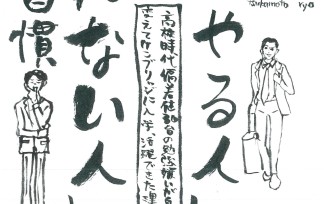 tsukamoto ryo
やる人
高校時代、偏差値30台の勉強嫌いが
変えてケンブリッジに入学、活躍できた理
ない人
慣